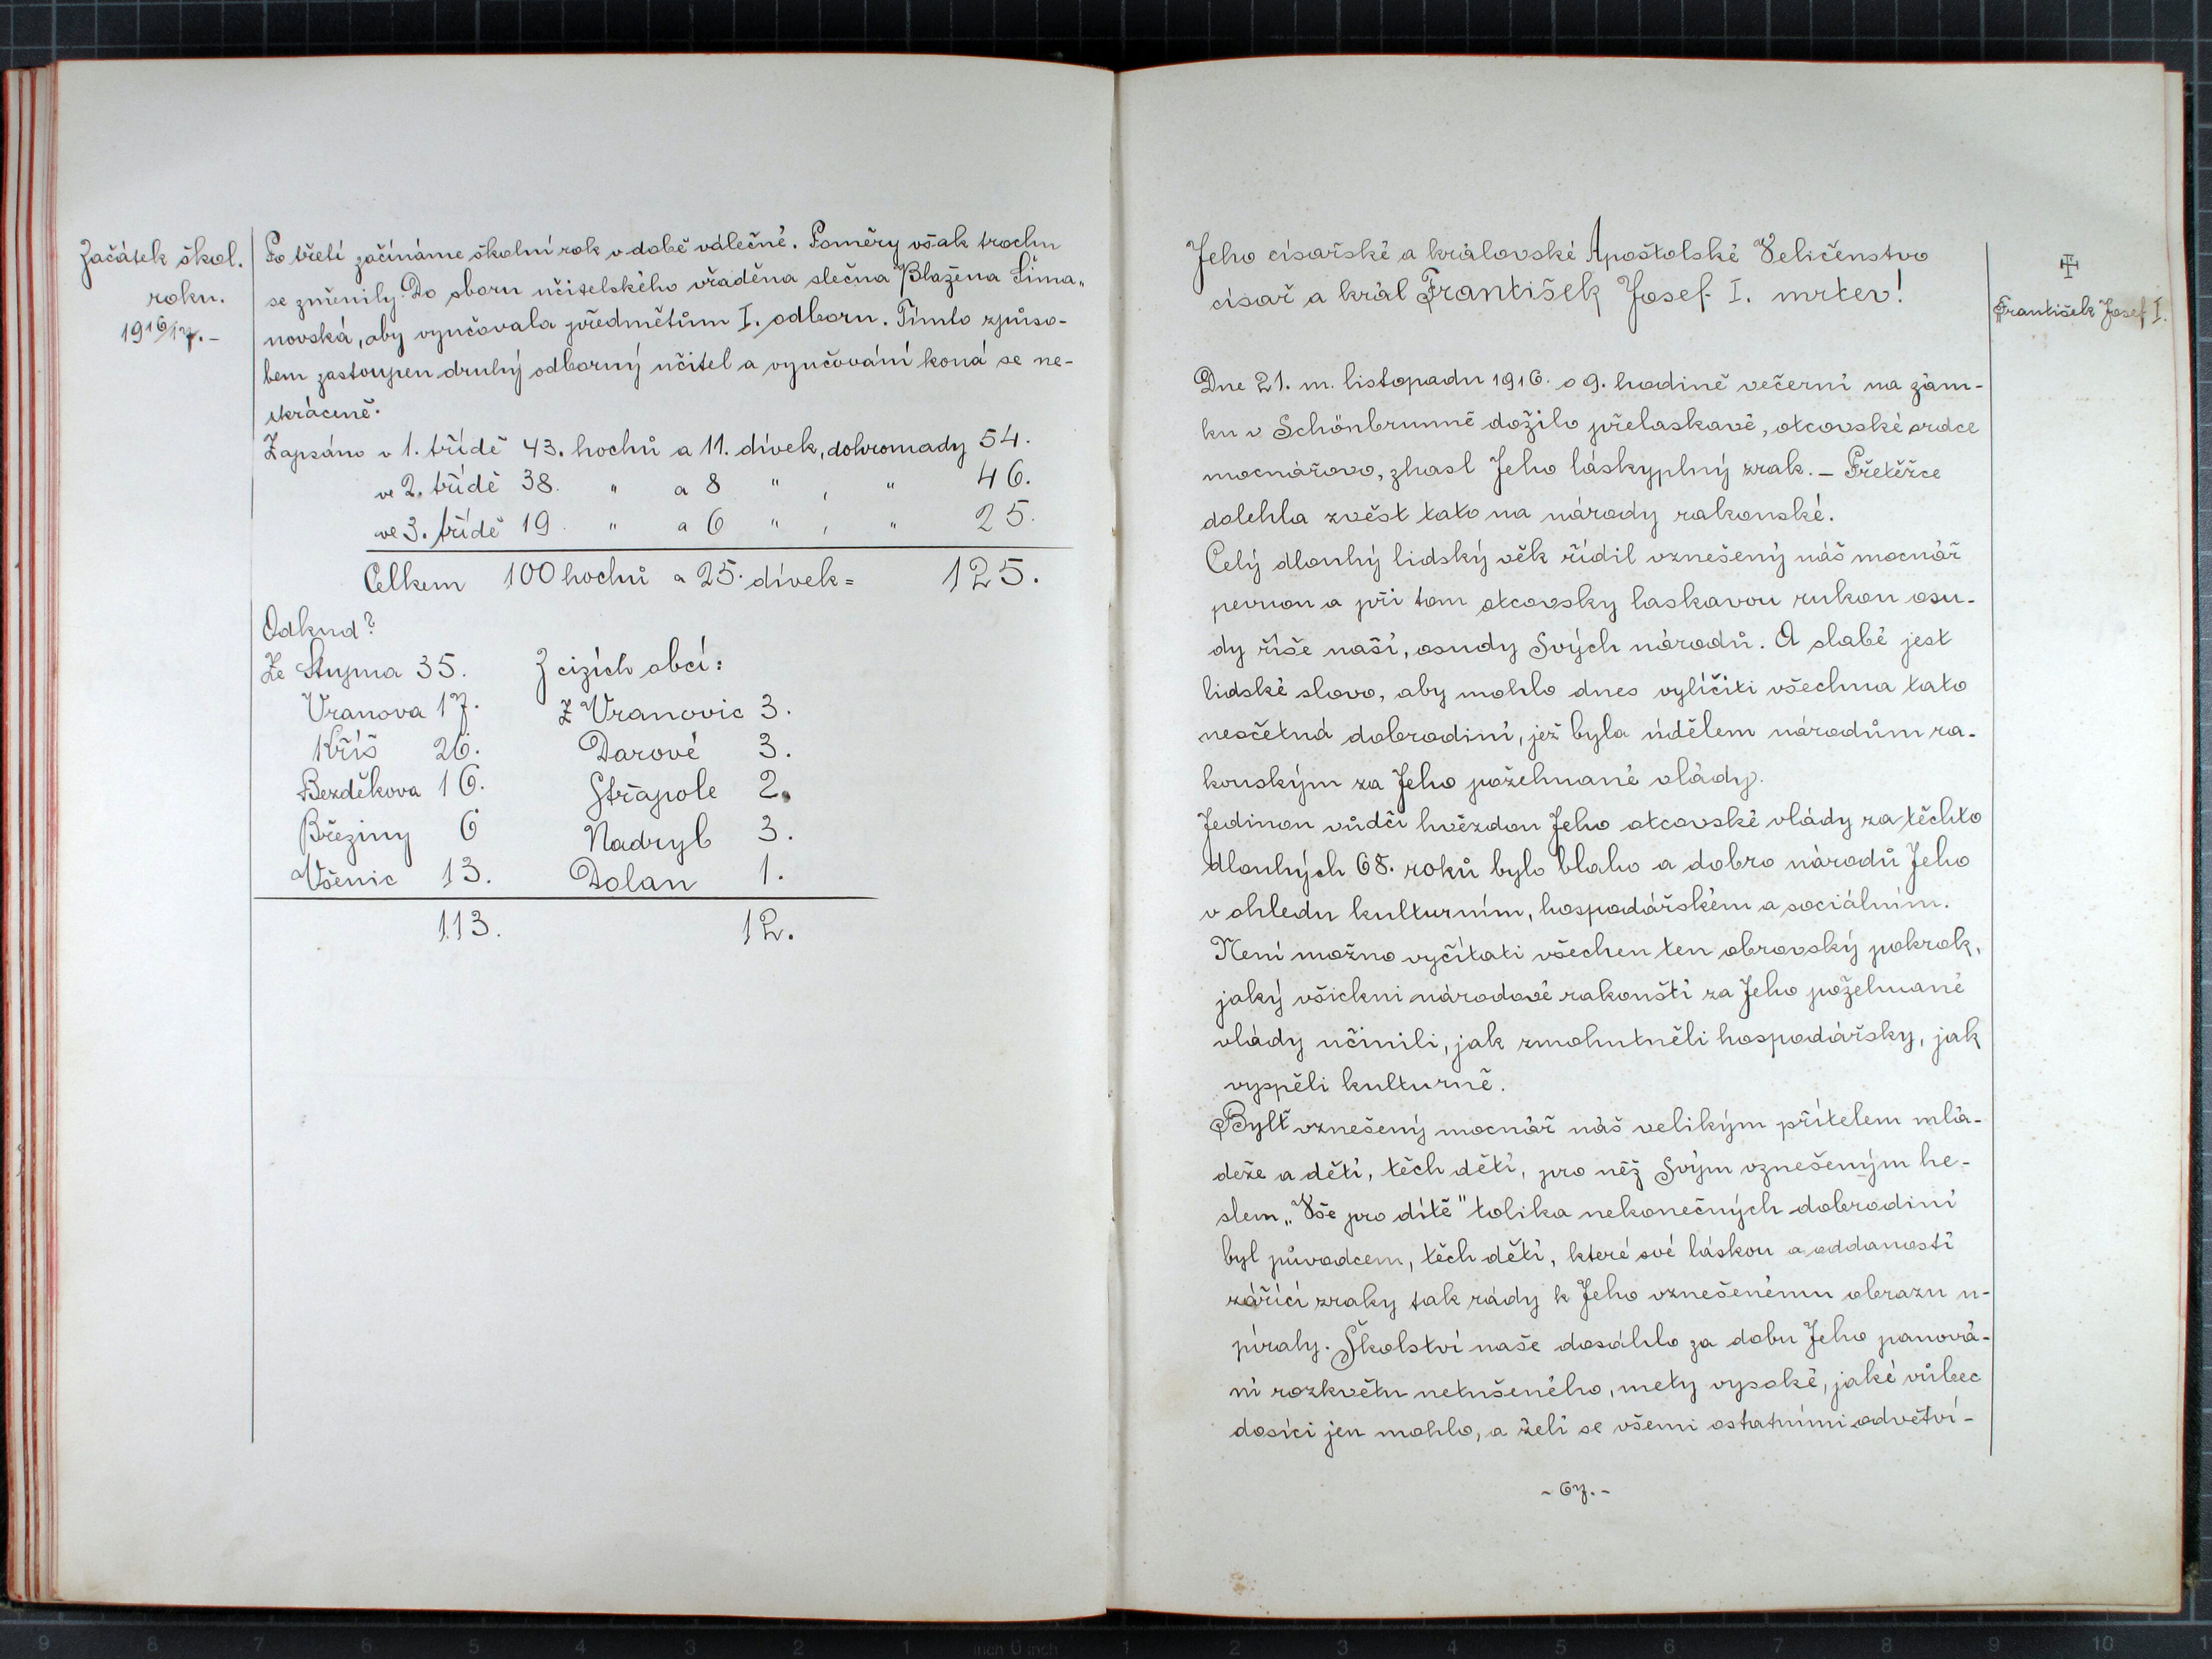 Začátek škol.
roku.
1916/17. –
Po třetí začínáme školní rok v době válečné. Poměry však trochu
se změnily. Do sboru učitelského vřaděna slečna Blažena Šima„
novská, aby vyučovala předmětům I. odboru. Tímto způso-
bem zastoupen druhý odborný učitel a vyučování koná se ne-
zkráceně.
Zapsáno v 1. třídě 43. hochů a 11. dívek, dohromady 54.
ve 2. třídě 38. " a 8 " , " 46.
ve 3. třídě 19. " a 6 " , " 25.
Celkem 100 hochů a 25. dívek = 125.
Odkud?
Ze Stupna 35. Z cizích obcí:
Vranova 17. Z Vranovic 3.
Kříš 26. Darové 3.
Bezděkova 16. Střapole 2.
Březiny 6 Nadryb 3.
Všenic 13. Dolan 1.
113. 12.
Jeho císařské a královské Apoštolské Veličenstvo
císař a král František Josef I. mrtev!
František Josef I.
Dne 21. m. listopadu 1916. o 9. hodině večerní na zám-
ku v Schönbrunně dožilo přelaskavé, otcovské srdce
mocnářovo, zhasl Jeho láskyplný zrak. – Přetěžce
dolehla zvěst tato na národy rakouské.
Celý dlouhý lidský věk řídil vznešený náš mocnář
pevnou a při tom otcovsky laskavou rukou osu-
dy říše naší, osudy Svých národů. A slabé jest
lidské slovo, aby mohlo dnes vylíčiti všechna tato
nesčetná dobrodiní, jež byla údělem národům ra-
kouským za Jeho požehnané vlády.
Jedinou vůdčí hvězdou Jeho otcovské vlády za těchto
dlouhých 68. roků bylo blaho a dobro národů Jeho
v ohledu kulturním, hospodářském a sociálním.
Není možno vyčítati všechen ten obrovský pokrok,
jaký všickni národové rakouští za Jeho požehnané
vlády učinili, jak zmohutněli hospodářsky, jak
vyspěli kulturně.
Bylť vznešený mocnář náš velikým přítelem mlá-
deže a dětí, těch dětí, pro něž Svým vznešeným he-
slem „Vše pro dítě" tolika nekonečných dobrodiní
byl původcem, těch dětí, které své láskou a oddaností
zářící zraky tak rády k Jeho vznešenému obrazu u-
píraly. Školství naše dosáhlo za dobu Jeho panová-
ní rozkvětu netušeného, mety vysoké, jaké vůbec
dosíci jen mohlo, a želí se všemi ostatními odvětví-
- 67. -